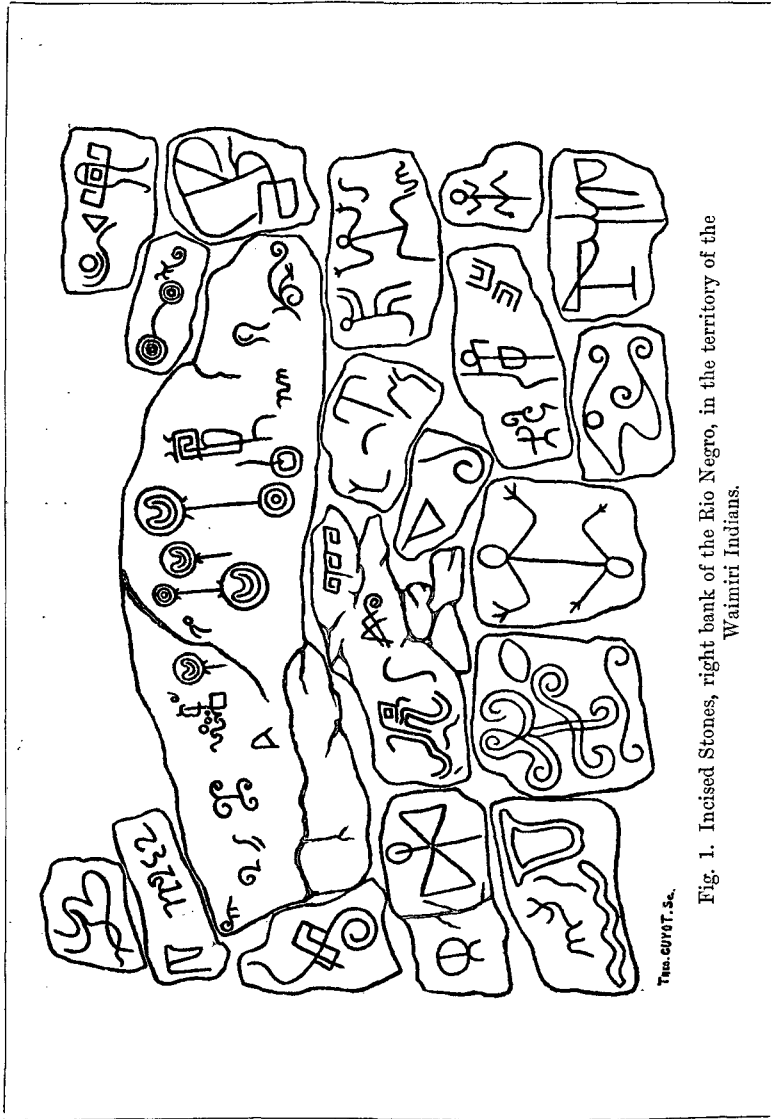 Theo. GUYOT. Sc.
Fig. 1. Incised Stones, right bank of the Rio Negro, in the territory of the
Waimiri Indians.